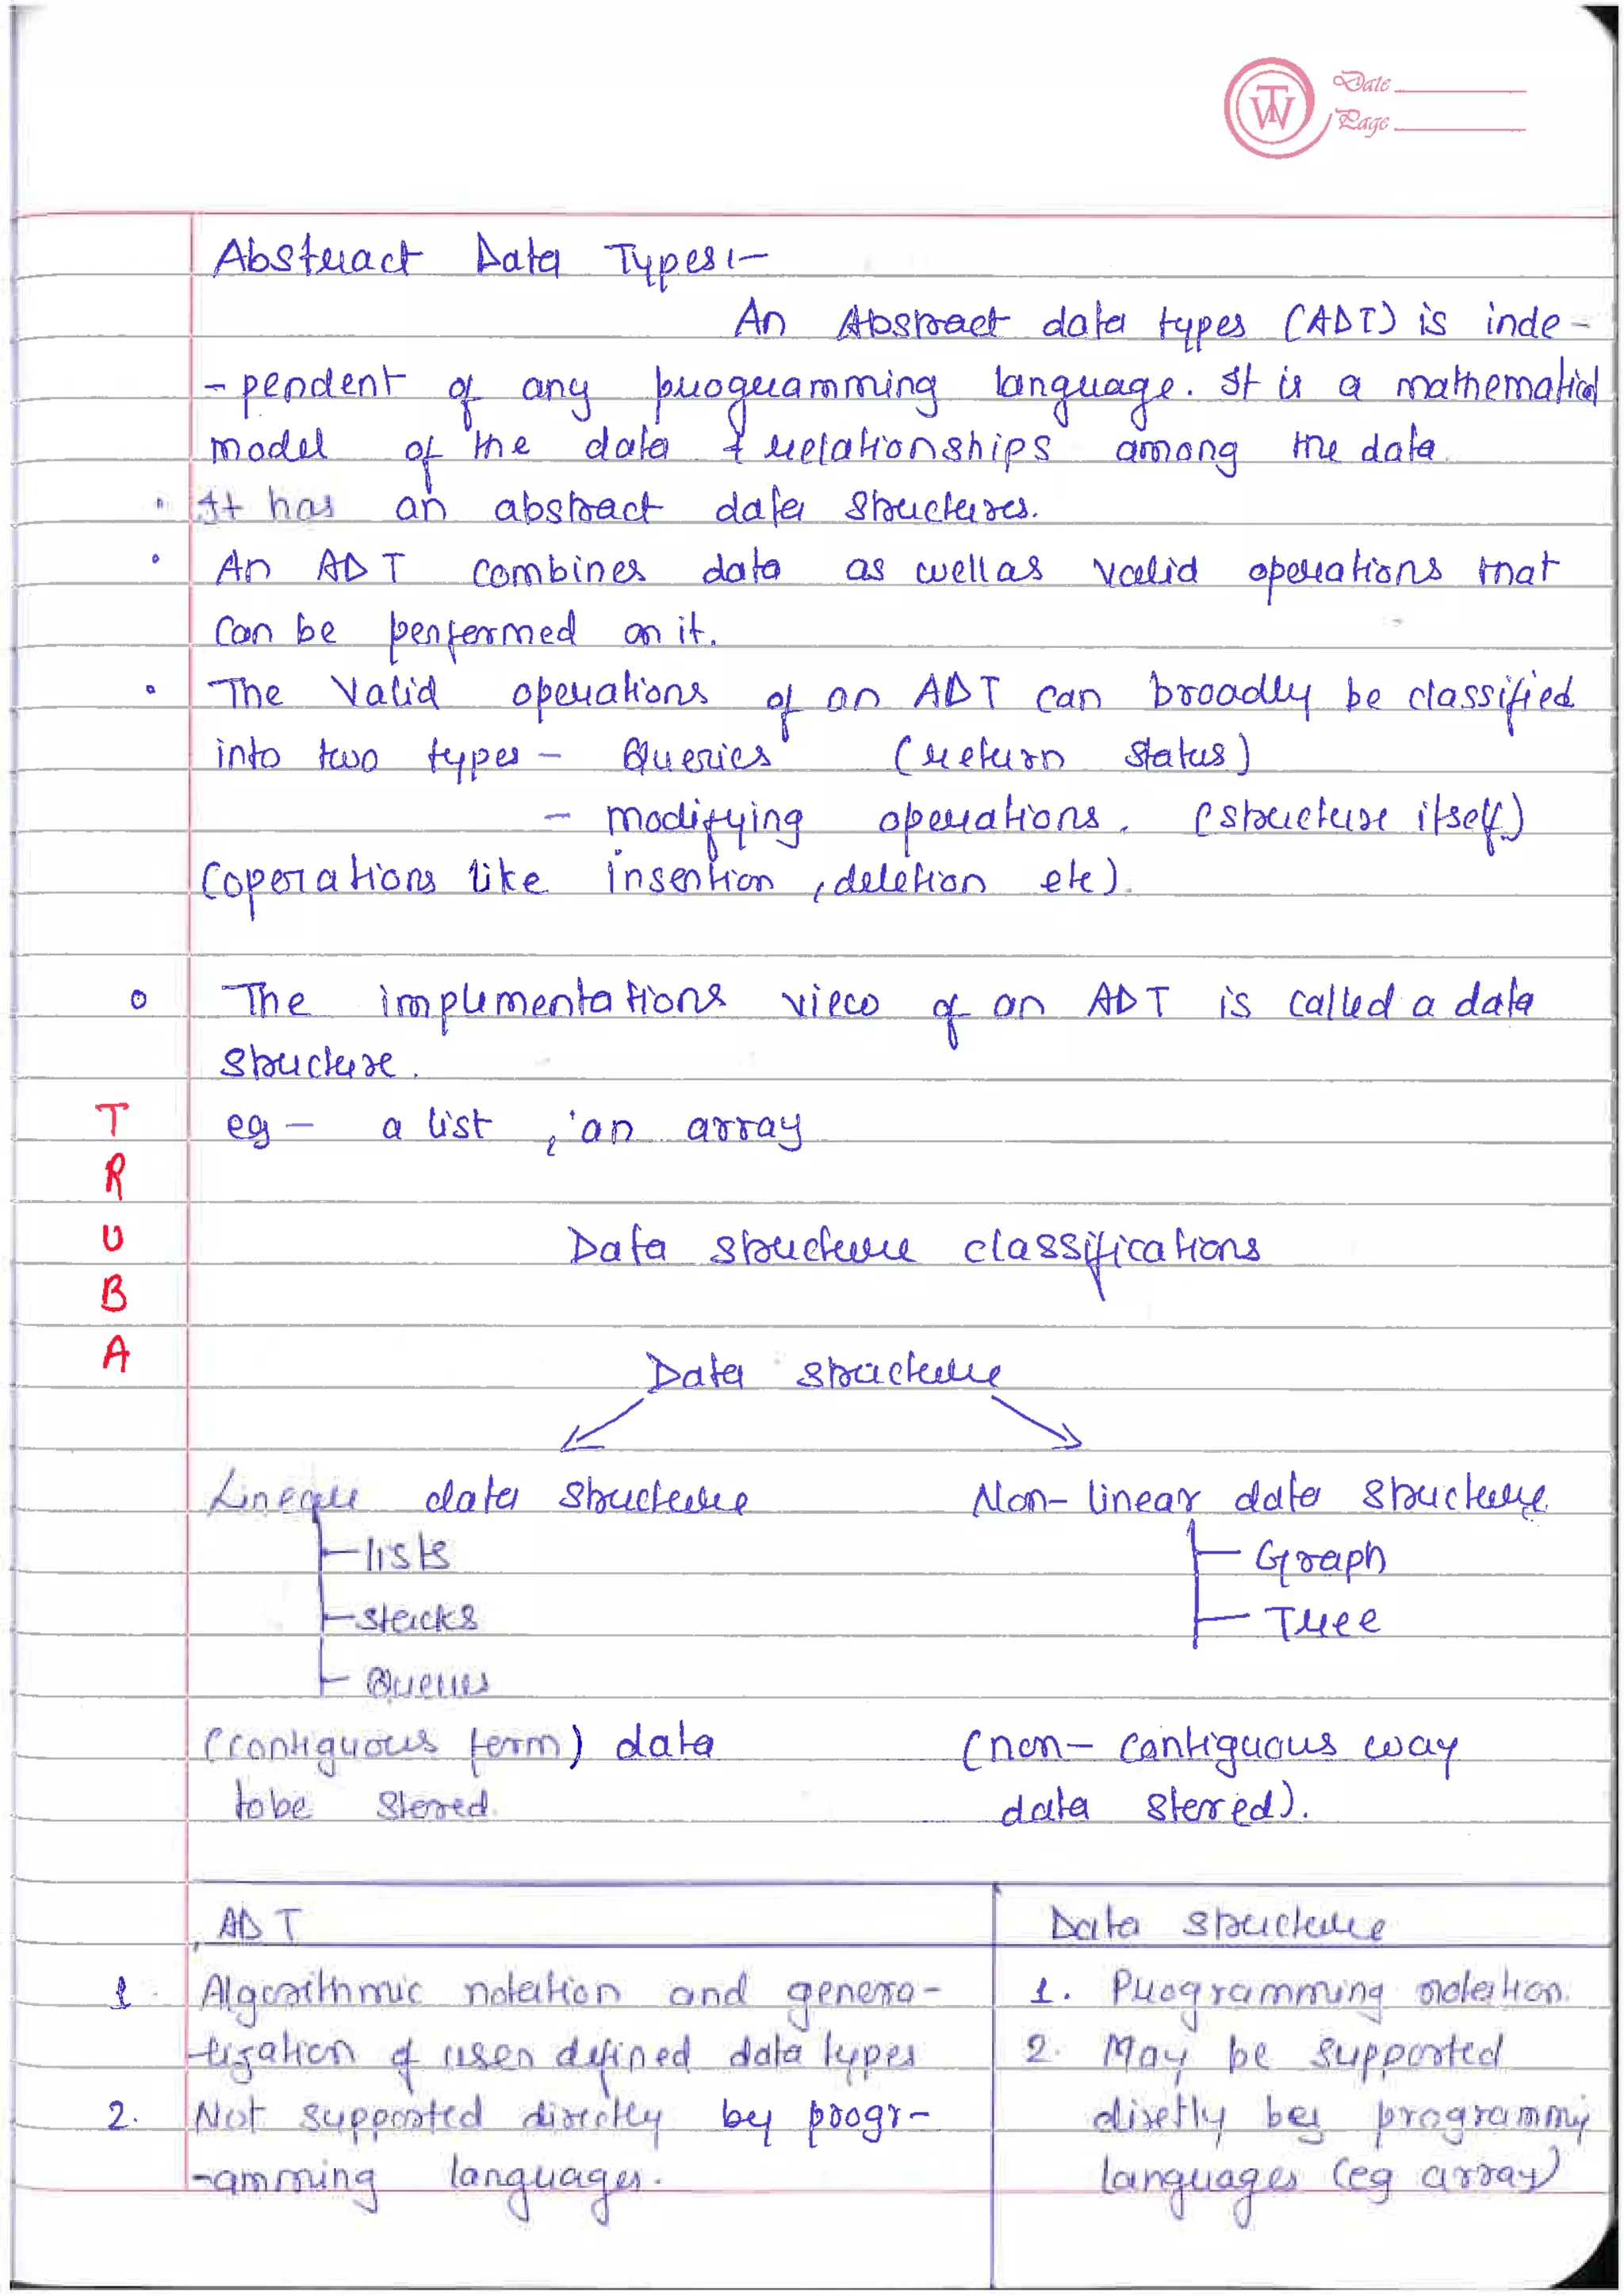 Date
Page
Abstract Data Types :-
An Abstract data types (ADT) is inde-
-pendent of any programming language. It is a mathematical
model of the data & relationships among the data
• It has an abstract data structures.
• An ADT combines data as well as valid operations that
can be performed on it.
• The Valid operations of an ADT can broadly be classified
into two types - Queries (return status)
- modifying operations. (structure itself)
(operations like insertion, deletion etc).
• The implementations view of an ADT is called a data
structure.
eg - a list, an array
T
R
U
B
A
Data structure classifications
Data structure
Linear data structure Non-linear data structure
lists Graph
stacks Tree
Queues
(contiguous form) data (non-contiguous way
to be stored data stored).
ADT Data structure
1. Algorithmic notation and genera- 1. Programming notation.
-lization of user defined data types 2. May be supported
2. Not supported directly by progr- diretly by programming
-amming languages. languages (eg array)